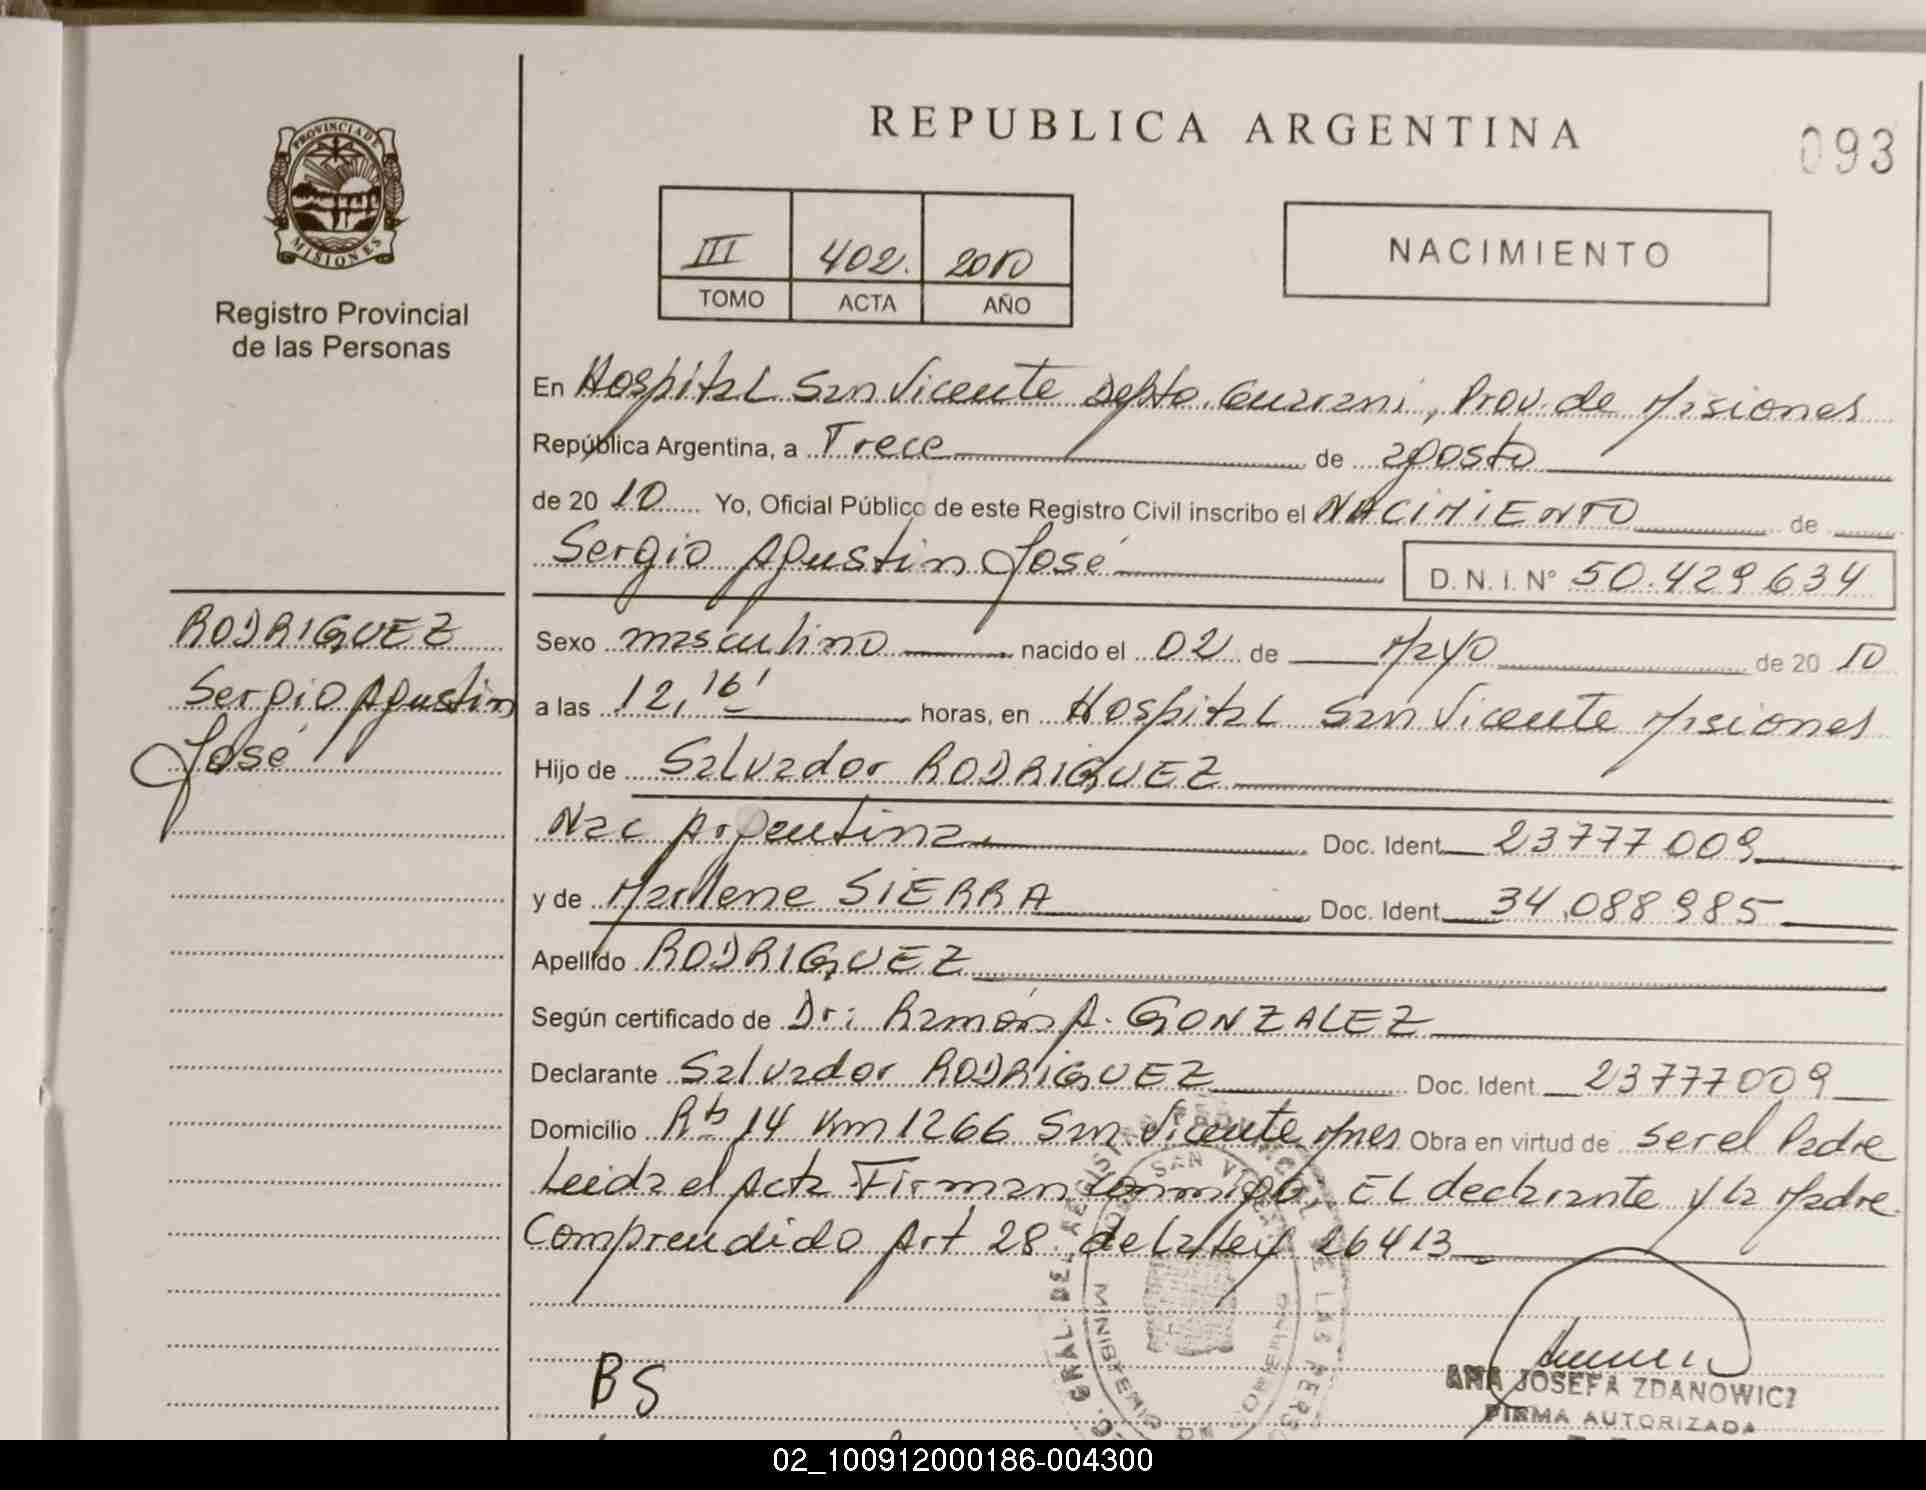 REPUBLICA ARGENTINA
093
PROVINCIA DE
MISIONES
Registro Provincial
de las Personas
III 402. 2010
TOMO ACTA AÑO
NACIMIENTO
En Hospital San Vicente Depto. Guarani, Prov. de Misiones
República Argentina, a Trece de agosto
de 20 10 Yo, Oficial Público de este Registro Civil inscribo el NACIMIENTO de
Sergio Agustin José D. N. I. N° 50.429634
RODRIGUEZ
Sergio Agustin
José
Sexo masculino nacido el 02 de Mayo de 20 10
a las 12,16' horas, en Hospital San Vicente Misiones
Hijo de Salvador RODRIGUEZ
Nac Argentina Doc. Ident. 23777009
y de Marlene SIERRA Doc. Ident. 34.088985
Apellido RODRIGUEZ
Según certificado de Dr: Ramón A. GONZALEZ
Declarante Salvador RODRIGUEZ Doc. Ident. 23777009
Domicilio 14 Km 1266 San Vicente Mnes Obra en virtud de ser el Padre
Leida el Acta Firman conmigo, El declarante y la Madre
Comprendido Art 28 de la Ley 26413
BS
SAN
MINISTERIO
ANA JOSEFA ZDANOWICZ
FIRMA AUTORIZADA
02_100912000186-004300